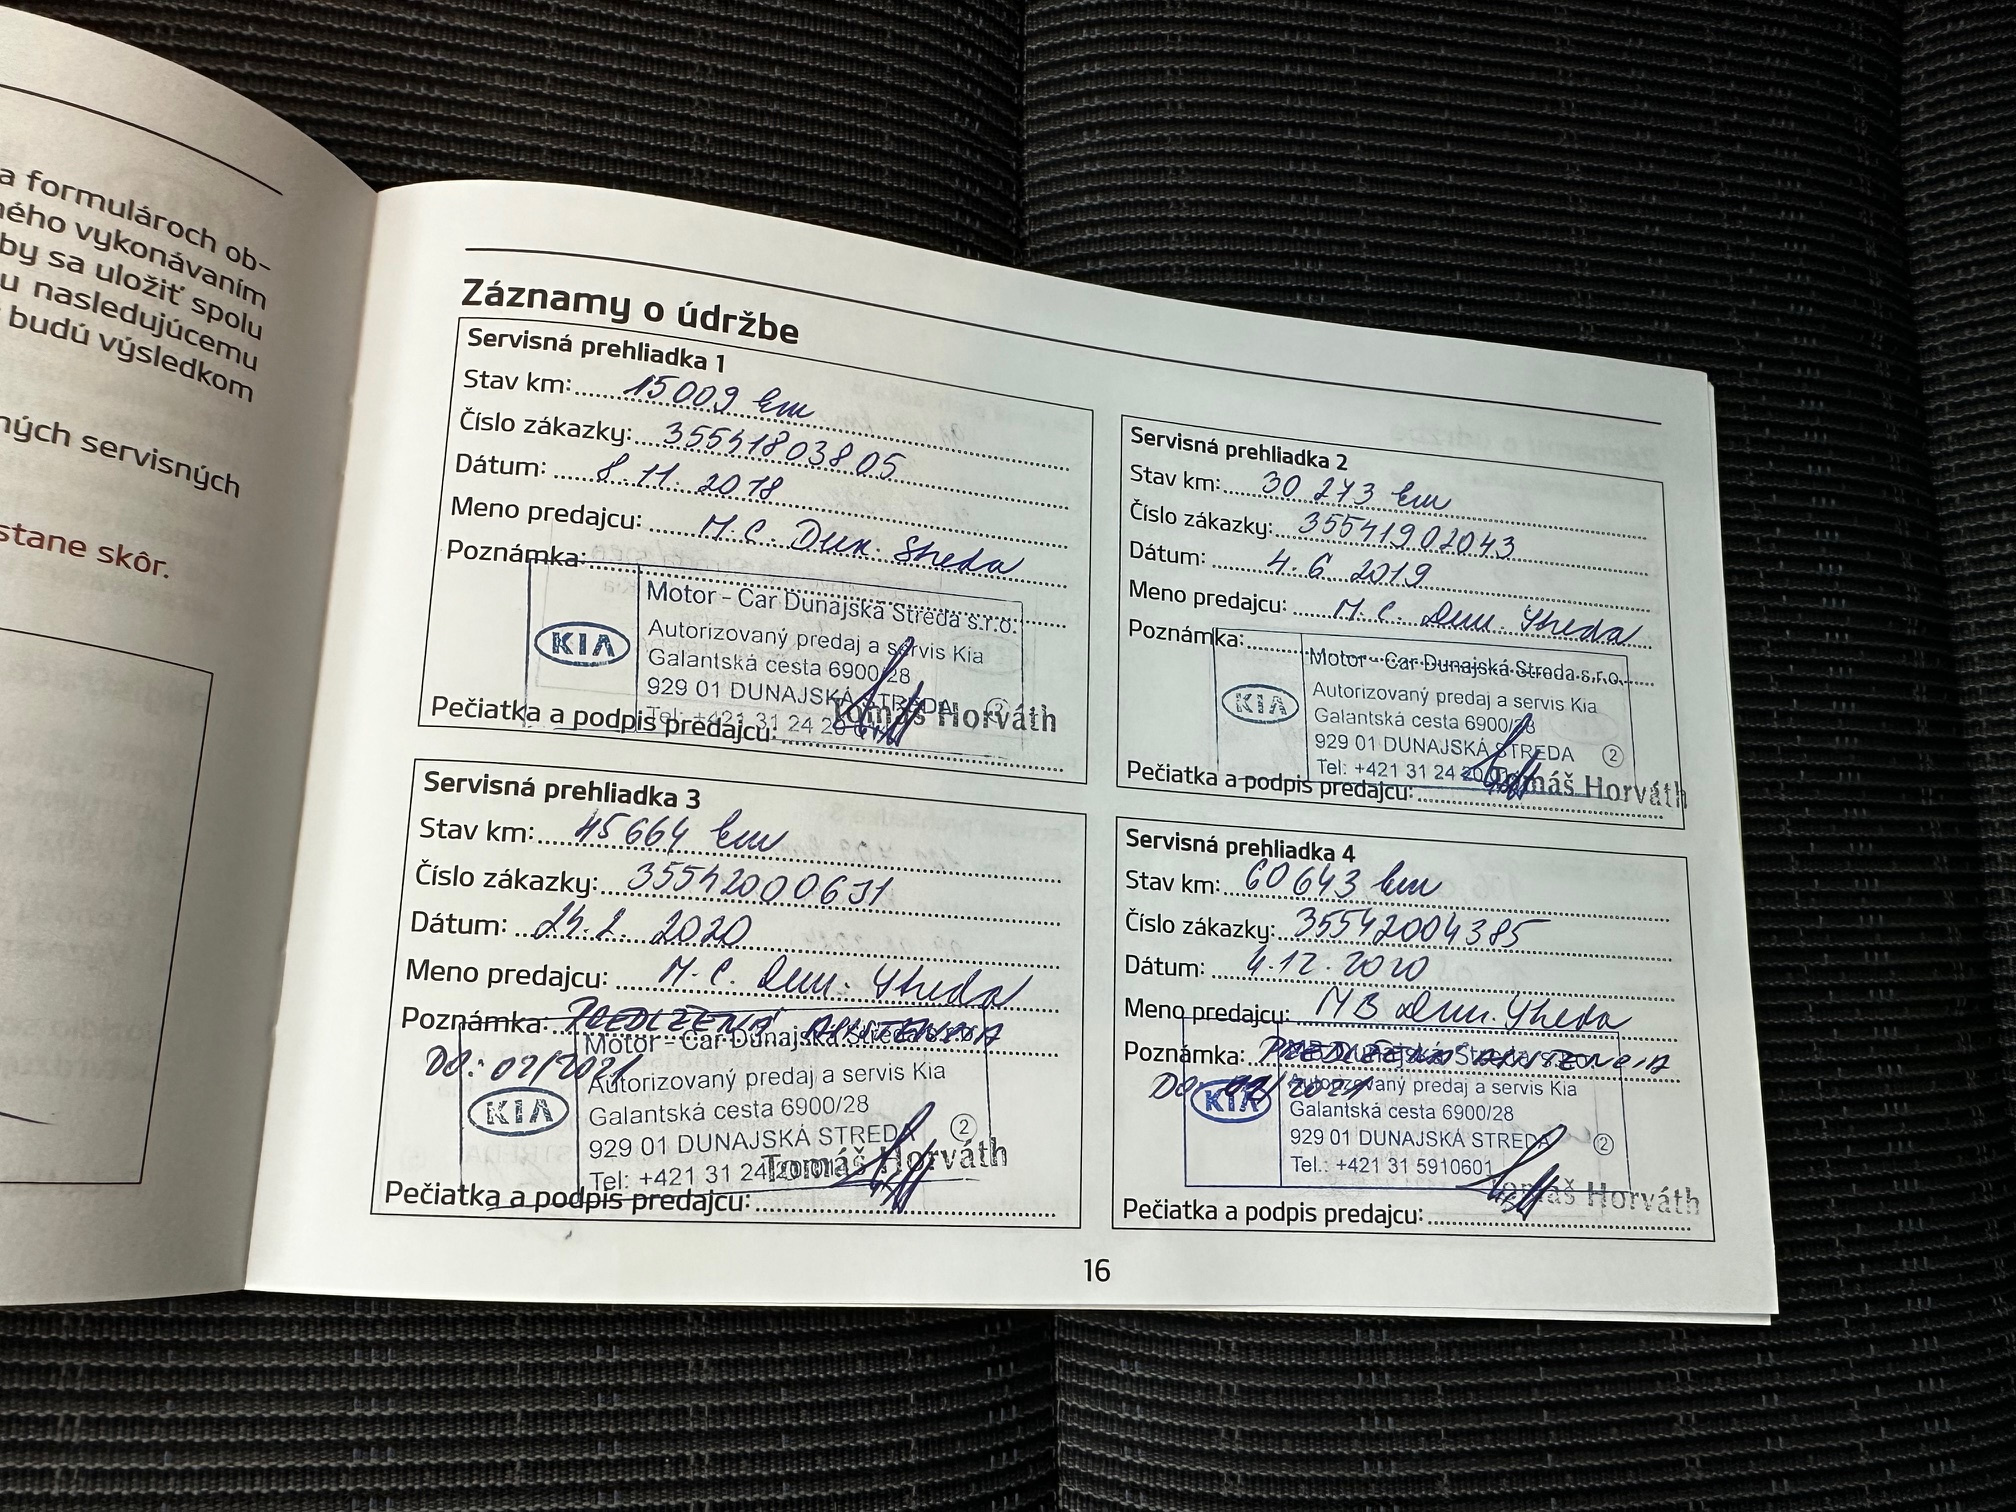 a formulároch ob-
ného vykonávaním
by sa uložiť spolu
u nasledujúcemu
budú výsledkom
ných servisných
stane skôr.
Záznamy o údržbe
Servisná prehliadka 1
Stav km: 15009 km
Číslo zákazky: 35541803805
Dátum: 8.11.2018
Meno predajcu: M.C. Dun. Streda
Poznámka:
Motor - Car Dunajská Streda s.r.o.
KIA
Autorizovaný predaj a servis Kia
Galantská cesta 6900/28
929 01 DUNAJSKÁ STREDA
2
Tel: +421 31 24 20
Tomáš Horváth
Pečiatka a podpis predajcu:
Servisná prehliadka 2
Stav km: 30 273 km
Číslo zákazky: 35541902043
Dátum: 4.6 2019
Meno predajcu: M.C. Dun. Streda
Poznámka:
Motor - Car Dunajská Streda s.r.o.
KIA
Autorizovaný predaj a servis Kia
Galantská cesta 6900/28
929 01 DUNAJSKÁ STREDA
2
Tel: +421 31 24 20
Tomáš Horváth
Pečiatka a podpis predajcu:
Servisná prehliadka 3
Stav km: 45664 km
Číslo zákazky: 35542000631
Dátum: 2020
Meno predajcu: M.C. Dun. Streda
Poznámka: PREDĹŽENÁ ASISTENCIA
DO: 02/2021
Motor - Car Dunajská Streda s.r.o.
KIA
Autorizovaný predaj a servis Kia
Galantská cesta 6900/28
929 01 DUNAJSKÁ STREDA
2
Tel: +421 31 24 20
Tomáš Horváth
Pečiatka a podpis predajcu:
Servisná prehliadka 4
Stav km: 60643 km
Číslo zákazky: 35542004385
Dátum: 4.12.2020
Meno predajcu: MB Dun. Streda
Poznámka: PREDĹŽENÁ ASISTENCIA
DO
Dunajská Streda
KIA
Autorizovaný predaj a servis Kia
Galantská cesta 6900/28
929 01 DUNAJSKÁ STREDA
2
Tel.: +421 31 5910601
Tomáš Horváth
Pečiatka a podpis predajcu:
16